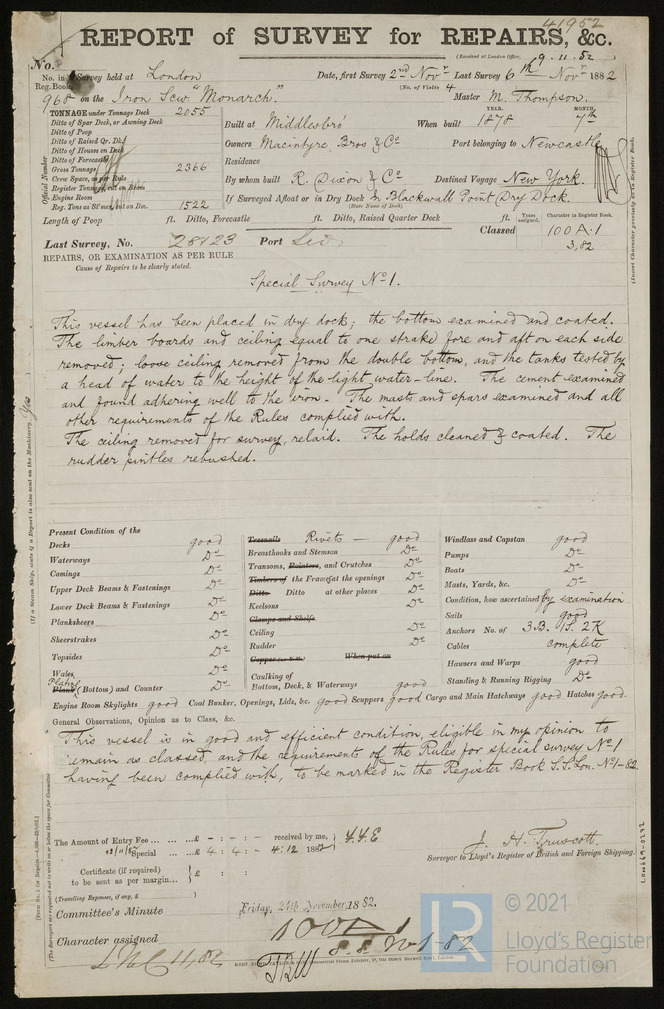 41952
REPORT of SURVEY for REPAIRS, &c.
(Received at London Office, 9.11.82
No.
No. in Survey held at London Date, first Survey 2nd Novr Last Survey 6th Novr 1882
Reg. Book. (No. of Visits 4
968 on the Iron Scw "Monarch." Master M. Thompson.
TONNAGE under Tonnage Deck 2055
Ditto of Spar Deck, or Awning Deck
Ditto of Poop
Ditto of Raised Qr. Dk.
Ditto of Houses on Deck
Ditto of Forecastle
Gross Tonnage 2366
Crew Space, as per Rule
Register Tonnage, cut on Beam
Engine Room
Reg. Tons as St'mer, cut on Bm. 1522
Official Number
YEAR. MONTH.
Built at Middlesbro' When built 1878 7th
Owners Macintyre, Bros & Co Port belonging to Newcastle
Residence
By whom built R. Dixon & Co Destined Voyage New York.
If Surveyed Afloat or in Dry Dock In Blackwall Point Dry Dock.
(State Name of Dock.)
Length of Poop ft. Ditto, Forecastle ft. Ditto, Raised Quarter Deck ft.
Years assigned. Character in Register Book.
Classed 100 A.1
3,82
(Insert Character precisely as in Register Book.
Last Survey, No. 28123 Port
REPAIRS, OR EXAMINATION AS PER RULE
Cause of Repairs to be clearly stated.
Special Survey No 1.
This vessel has been placed in dry dock; the bottom examined and coated.
The limber boards and ceiling equal to one strake fore and aft on each side
removed; loose ceiling removed from the double bottom, and the tanks tested by
a head of water to the height of the light water-line. The cement examined
and found adhering well to the iron. The masts and spars examined and all
other requirements of the Rules complied with.
The ceiling removed for survey, relaid. The holds cleaned & coated. The
rudder pintles rebushed.
(If a Steam Ship, state if a Report is also sent on the Machinery. Yes
Present Condition of the
Decks good
Waterways Do
Comings Do
Upper Deck Beams & Fastenings Do
Lower Deck Beams & Fastenings Do
Planksheers Do
Sheerstrakes Do
Topsides Do
Wales Do
Plates
Plank (Bottom) and Counter Do
Treenails Rivets — good
Breasthooks and Stemson Do
Transoms, Pointers, and Crutches Do
Timbers of the Frame at the openings Do
Ditto Ditto at other places Do
Keelsons Do
Clamps and Shelfs
Ceiling Do
Rudder Do
Copper (or Y.M.) When put on
Caulking of
Bottom, Deck, & Waterways good
Windlass and Capstan good
Pumps Do
Boats Do
Masts, Yards, &c. Do
Condition, how ascertained by examination
Sails good
Anchors No. of 3B. 1S. 2K
Cables complete
Hawsers and Warps good
Standing & Running Rigging Do
Engine Room Skylights good Coal Bunker, Openings, Lids, &c. good Scuppers good Cargo and Main Hatchways good Hatches good.
General Observations, Opinion as to Class, &c.
This vessel is in good and efficient condition, eligible in my opinion to
remain as classed, and the requirements of the Rules for special survey No 1
having been complied with, to be marked in the Register Book S.S. Lon. No 1-82.
The Amount of Entry Fee ... £ - : - : - received by me,
Special ... £ 4 : 4 : - 4.12 1882
Certificate (if required)
to be sent as per margin... } £ : :
(Travelling Expenses, if any, £
J. H. Truscott.
Surveyor to Lloyd's Register of British and Foreign Shipping.
Committee's Minute Friday, 24th November 1882.
Character assigned 100A1
S.S. No 1-82
LMC 11,82
Lon669-0272
© 2021
LR
Lloyd's Register
Foundation